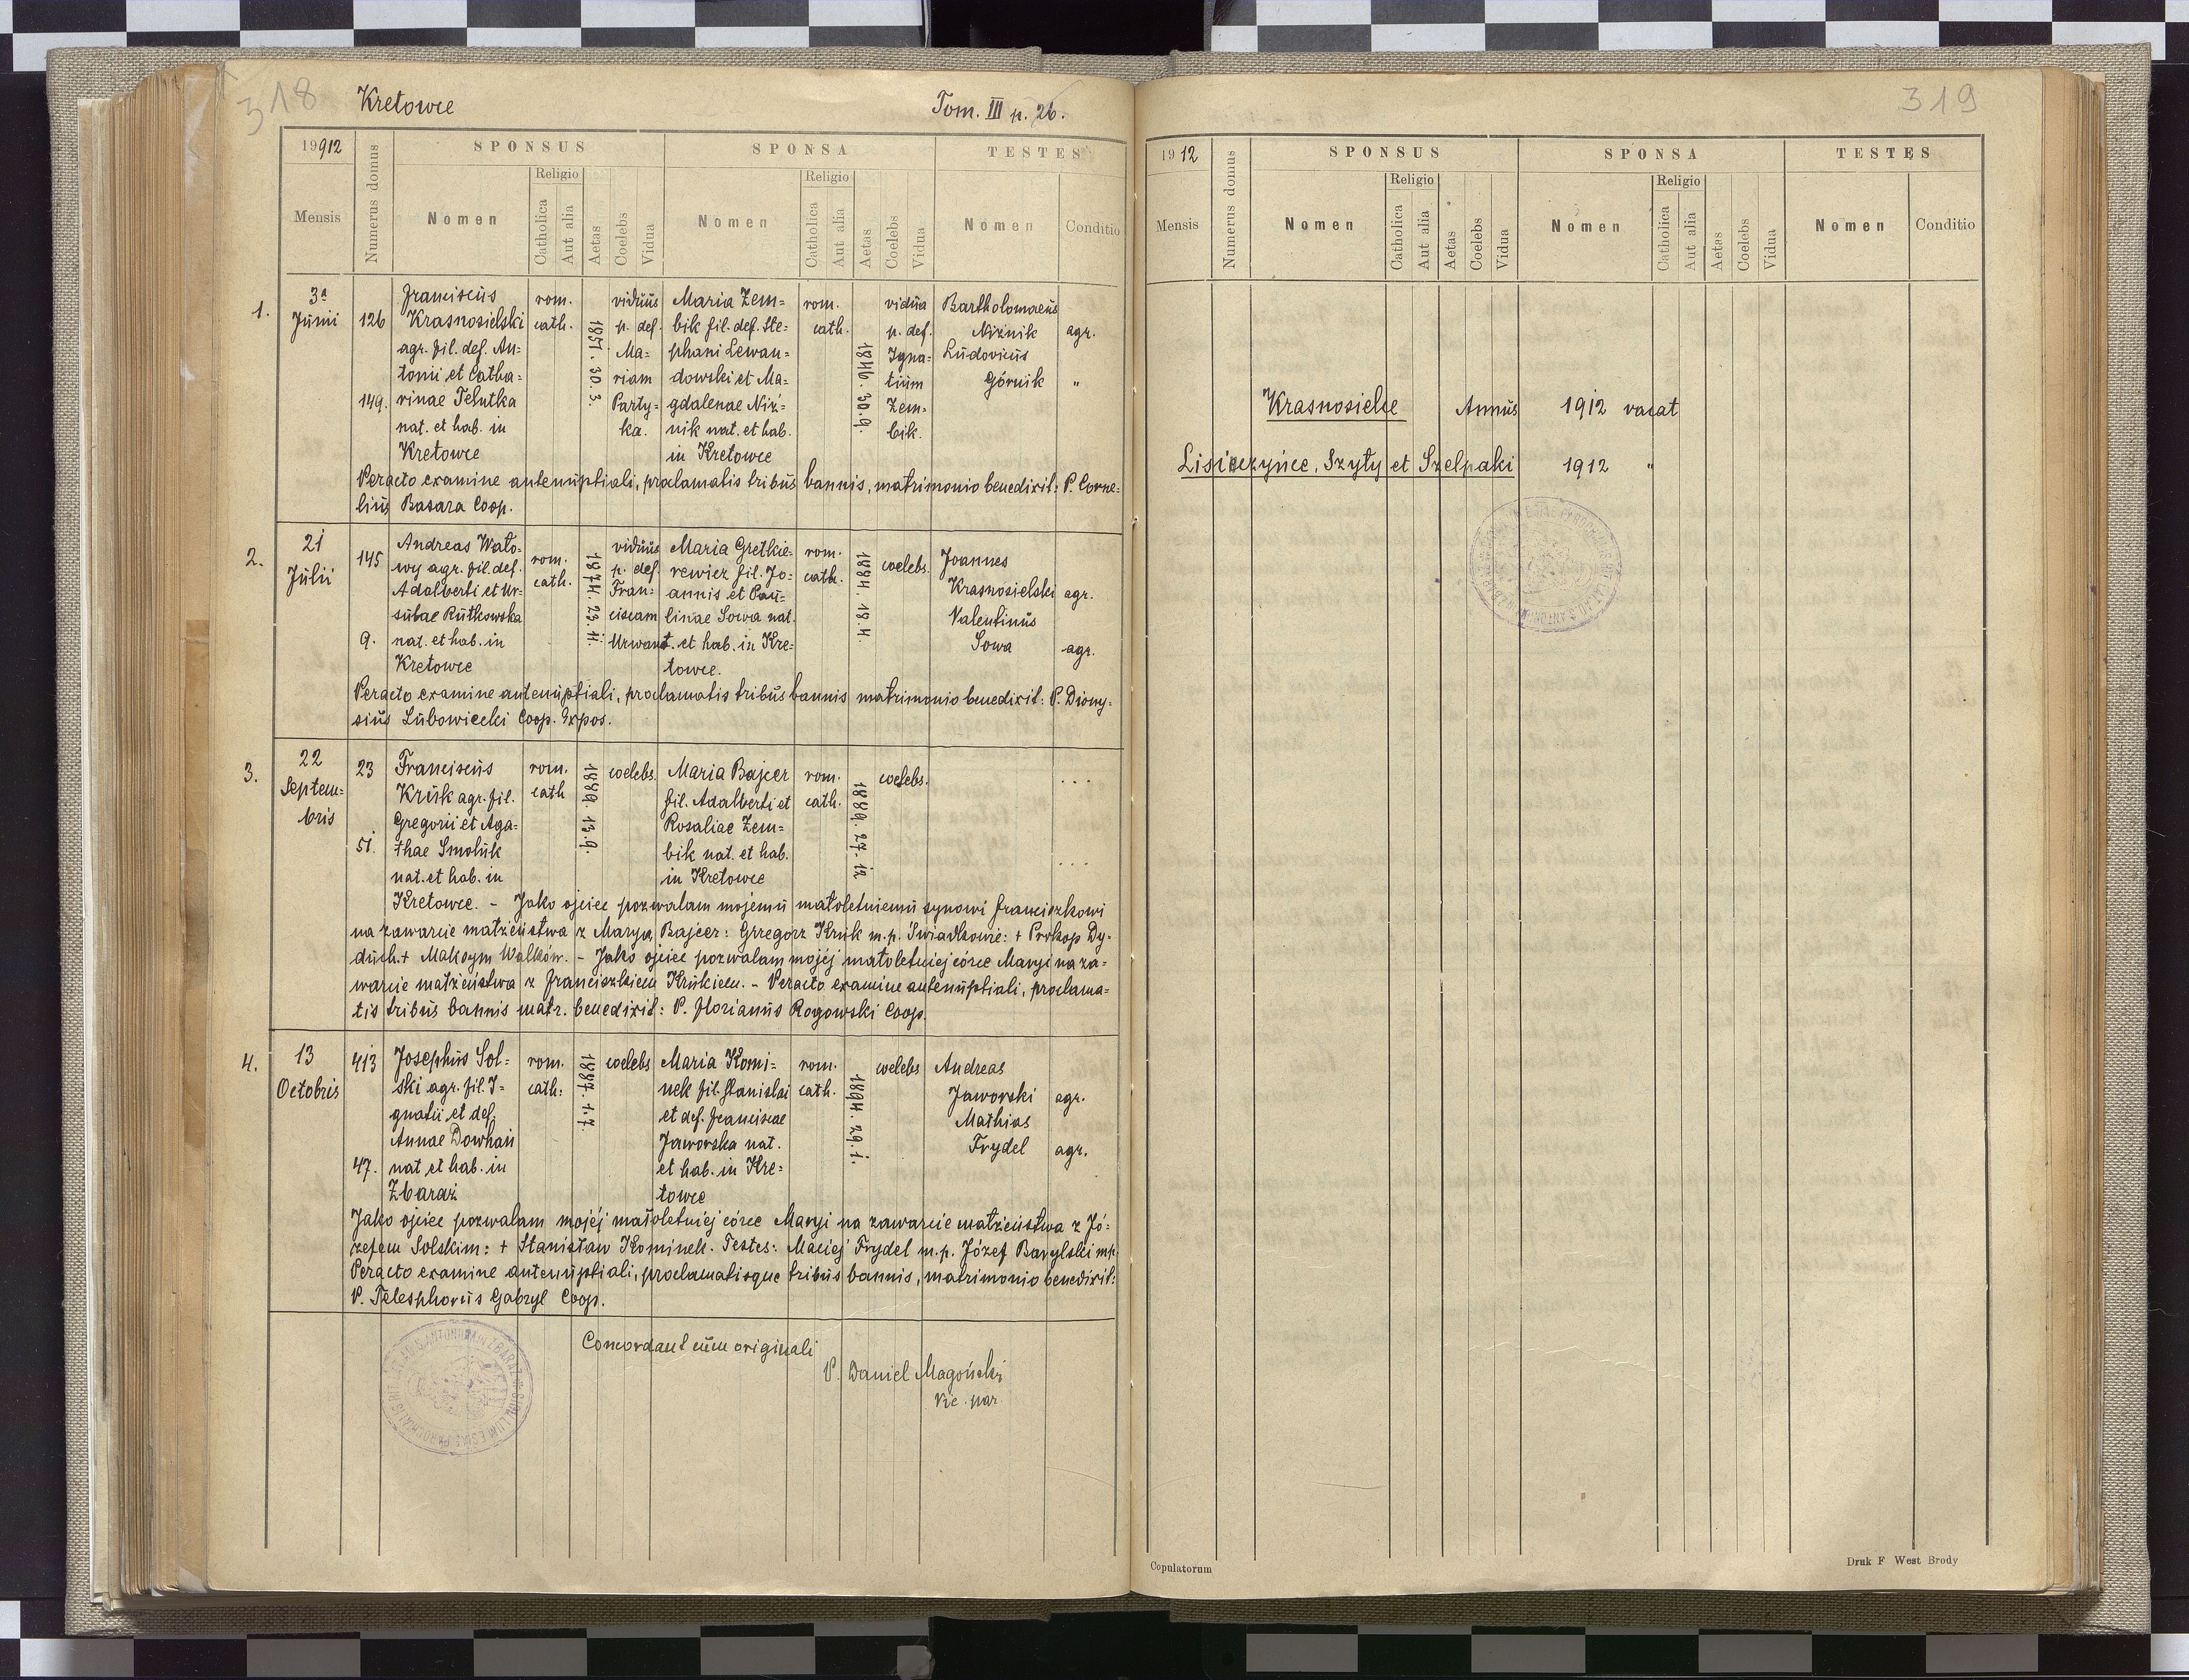 318
Kretowce
Tom. III p. 26.
19912
SPONSUS
SPONSA
TESTES
Mensis
Numerus domus
Nomen
Religio
Catholica
Aut alia
Aetas
Coelebs
Vidua
Nomen
Religio
Catholica
Aut alia
Aetas
Coelebs
Vidua
Nomen
Conditio
1.
3a
Junii
126
149.
Franciscus
Krasnosielski
agr. fil. def. An=
tonii et Catha=
rinae Telutka
nat. et hab. in
Kretowce
rom.
cath.
1857. 30. 3.
viduus
p. def.
Ma=
riam
Party=
ka.
Maria Zem=
bik fil. def. Ste=
phani Lewan=
dowski et Ma=
gdalenae Niż=
nik nat. et hab.
in Kretowce
rom.
cath.
1846. 30. 9.
vidua
p. def.
Igna=
tium
Zem=
bik.
Bartholomaeus
Niżnik
Ludovicus
Górnik
agr.
"
Peracto examine antenuptiali, proclamatis tribus bannis, matrimonio benedixit: P. Corne=
lius Basara Coop.
2.
21
Julii
145
9.
Andreas Wato=
wy agr. fil. def.
Adalberti et Ur=
sulae Rutkowska
nat. et hab. in
Kretowce
rom.
cath.
1874. 23. 11.
viduus
p. def.
Fran=
ciscam
Urwant.
Maria Gretkie=
rewicz fil. Jo=
annis et Pau=
linae Sowa nat.
et hab. in Kre=
towce.
rom.
cath.
1884. 18. 4.
coelebs.
Joannes
Krasnosielski
Valentinus
Sowa
agr.
agr.
Peracto examine antenuptiali, proclamatis tribus bannis matrimonio benedixit: P. Diony=
sius Lubowiecki Coop. Expos.
3.
22
Septem=
bris
23
51.
Franciscus
Kruk agr. fil.
Gregorii et Aga=
thae Smoluk
nat. et hab. in
rom.
cath
1889. 13. 9.
coelebs.
Maria Bajcer
fil. Adalberti et
Rosaliae Zem=
bik nat. et hab.
in Kretowce
rom.
cath.
1889. 27. 12
coelebs.
...
...
Kretowce. - Jako ojciec pozwalam mojemu małoletniemu synowi Franciszkowi
na zawarcie małżeństwa z Maryą Bajcer: Grzegorz Kruk m.p. Świadkowie: + Prokop Dy=
duch + Maksym Wałków. - Jako ojciec pozwalam mojej małoletniej córce Maryi na za=
warcie małżeństwa z Franciszkiem Krukiem. - Peracto examine antenuptiali, proclama=
tis tribus bannis matr. benedixit: P. Florianus Rogowski Coop.
4.
13
Octobris
413
47.
Josephus Sol=
ski agr. fil. I=
gnatii et def.
Annae Dowhań
nat et hab. in
Zbaraż
rom.
cath:
1887. 1. 7.
coelebs
Maria Komi=
nek fil. Stanislai
et def. Franciscae
Jaworska nat.
et hab. in Kre=
towce
rom.
cath.
1894. 29. 1.
coelebs
Andreas
Jaworski
Mathias
Frydel
agr.
agr.
Jako ojciec pozwalam mojej małoletniej córce Maryi na zawarcie małżeństwa z Jó=
zefem Solskim: + Stanisław Kominek. Testes: Maciej Frydel m.p. Józef Barylski mp.
Peracto examine antenuptiali, proclamatisque tribus bannis, matrimonio benedixit:
P. Telesphorus Gabryl Coop.
Concordant cum originali
P. Daniel Magoński
Vic. par.
319
1912
SPONSUS
SPONSA
TESTES
Mensis
Numerus domus
Nomen
Religio
Catholica
Aut alia
Aetas
Coelebs
Vidua
Nomen
Religio
Catholica
Aut alia
Aetas
Coelebs
Vidua
Nomen
Conditio
Krasnosielce Annus 1912 vacat
Lisiczyńce, Szyły et Szelpaki 1912 "
Copulatorum
Druk F West Brody